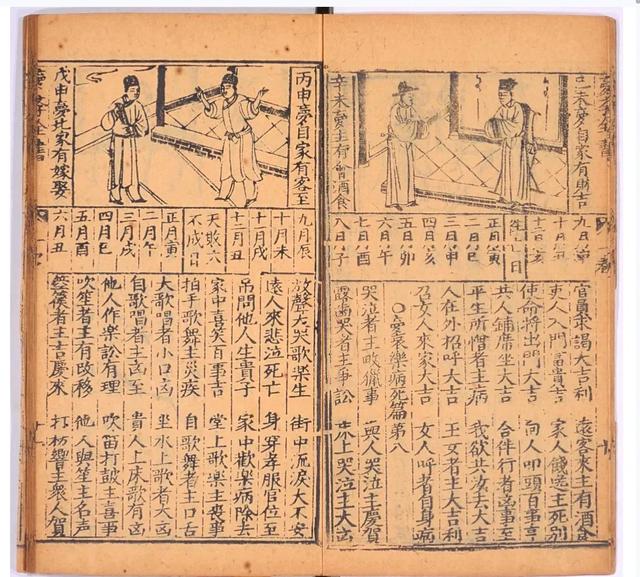 己未夢自家有財吉
辛未夢主有會酒食
正月寅
二月巳
三月申
四月亥
五月卯
六月午
七月酉
八月子
官員求謁大吉利 遠客來主有酒食
吏人入門富貴吉 家人餞送主死別
使命將出門大吉 向人叩頭百事亨
共人鋪席坐大吉 合伴行者凶事至
平生所憎者主病 我欲共汝去大吉
人在外招呼大吉 王女者主大吉利
召女人來家大吉 女人呼者自身病
○夢哀樂病死篇第八
哭泣者主畋獵事 與人哭泣主慶賀
露齒哭者主爭訟 床上哭泣主大凶
丙申夢自家有客至
戊申夢北家有嫁娶
九月辰
十月未
十一月戌
十二月丑
天敗六不成日
正月寅
二月午
三月戌
四月巳
五月酉
六月丑
放聲大哭歌樂生 街中流淚大不安
遠人來悲泣死亡 身穿孝服官位至
弔問他人生貴子 家中歡樂病除去
家中喜笑百事吉 堂上歌樂主喪事
拍手歌舞主災疾 自歌舞者主口舌
大歌唱者小口凶 坐水上歌者大凶
自歌唱者主凶至 貴人上床歌有凶
他人作樂訟有理 吹笛打鼓主喜事
吹笙者主有改移 他人與笙主名声
者主吉慶來 打枋響主衆人賀